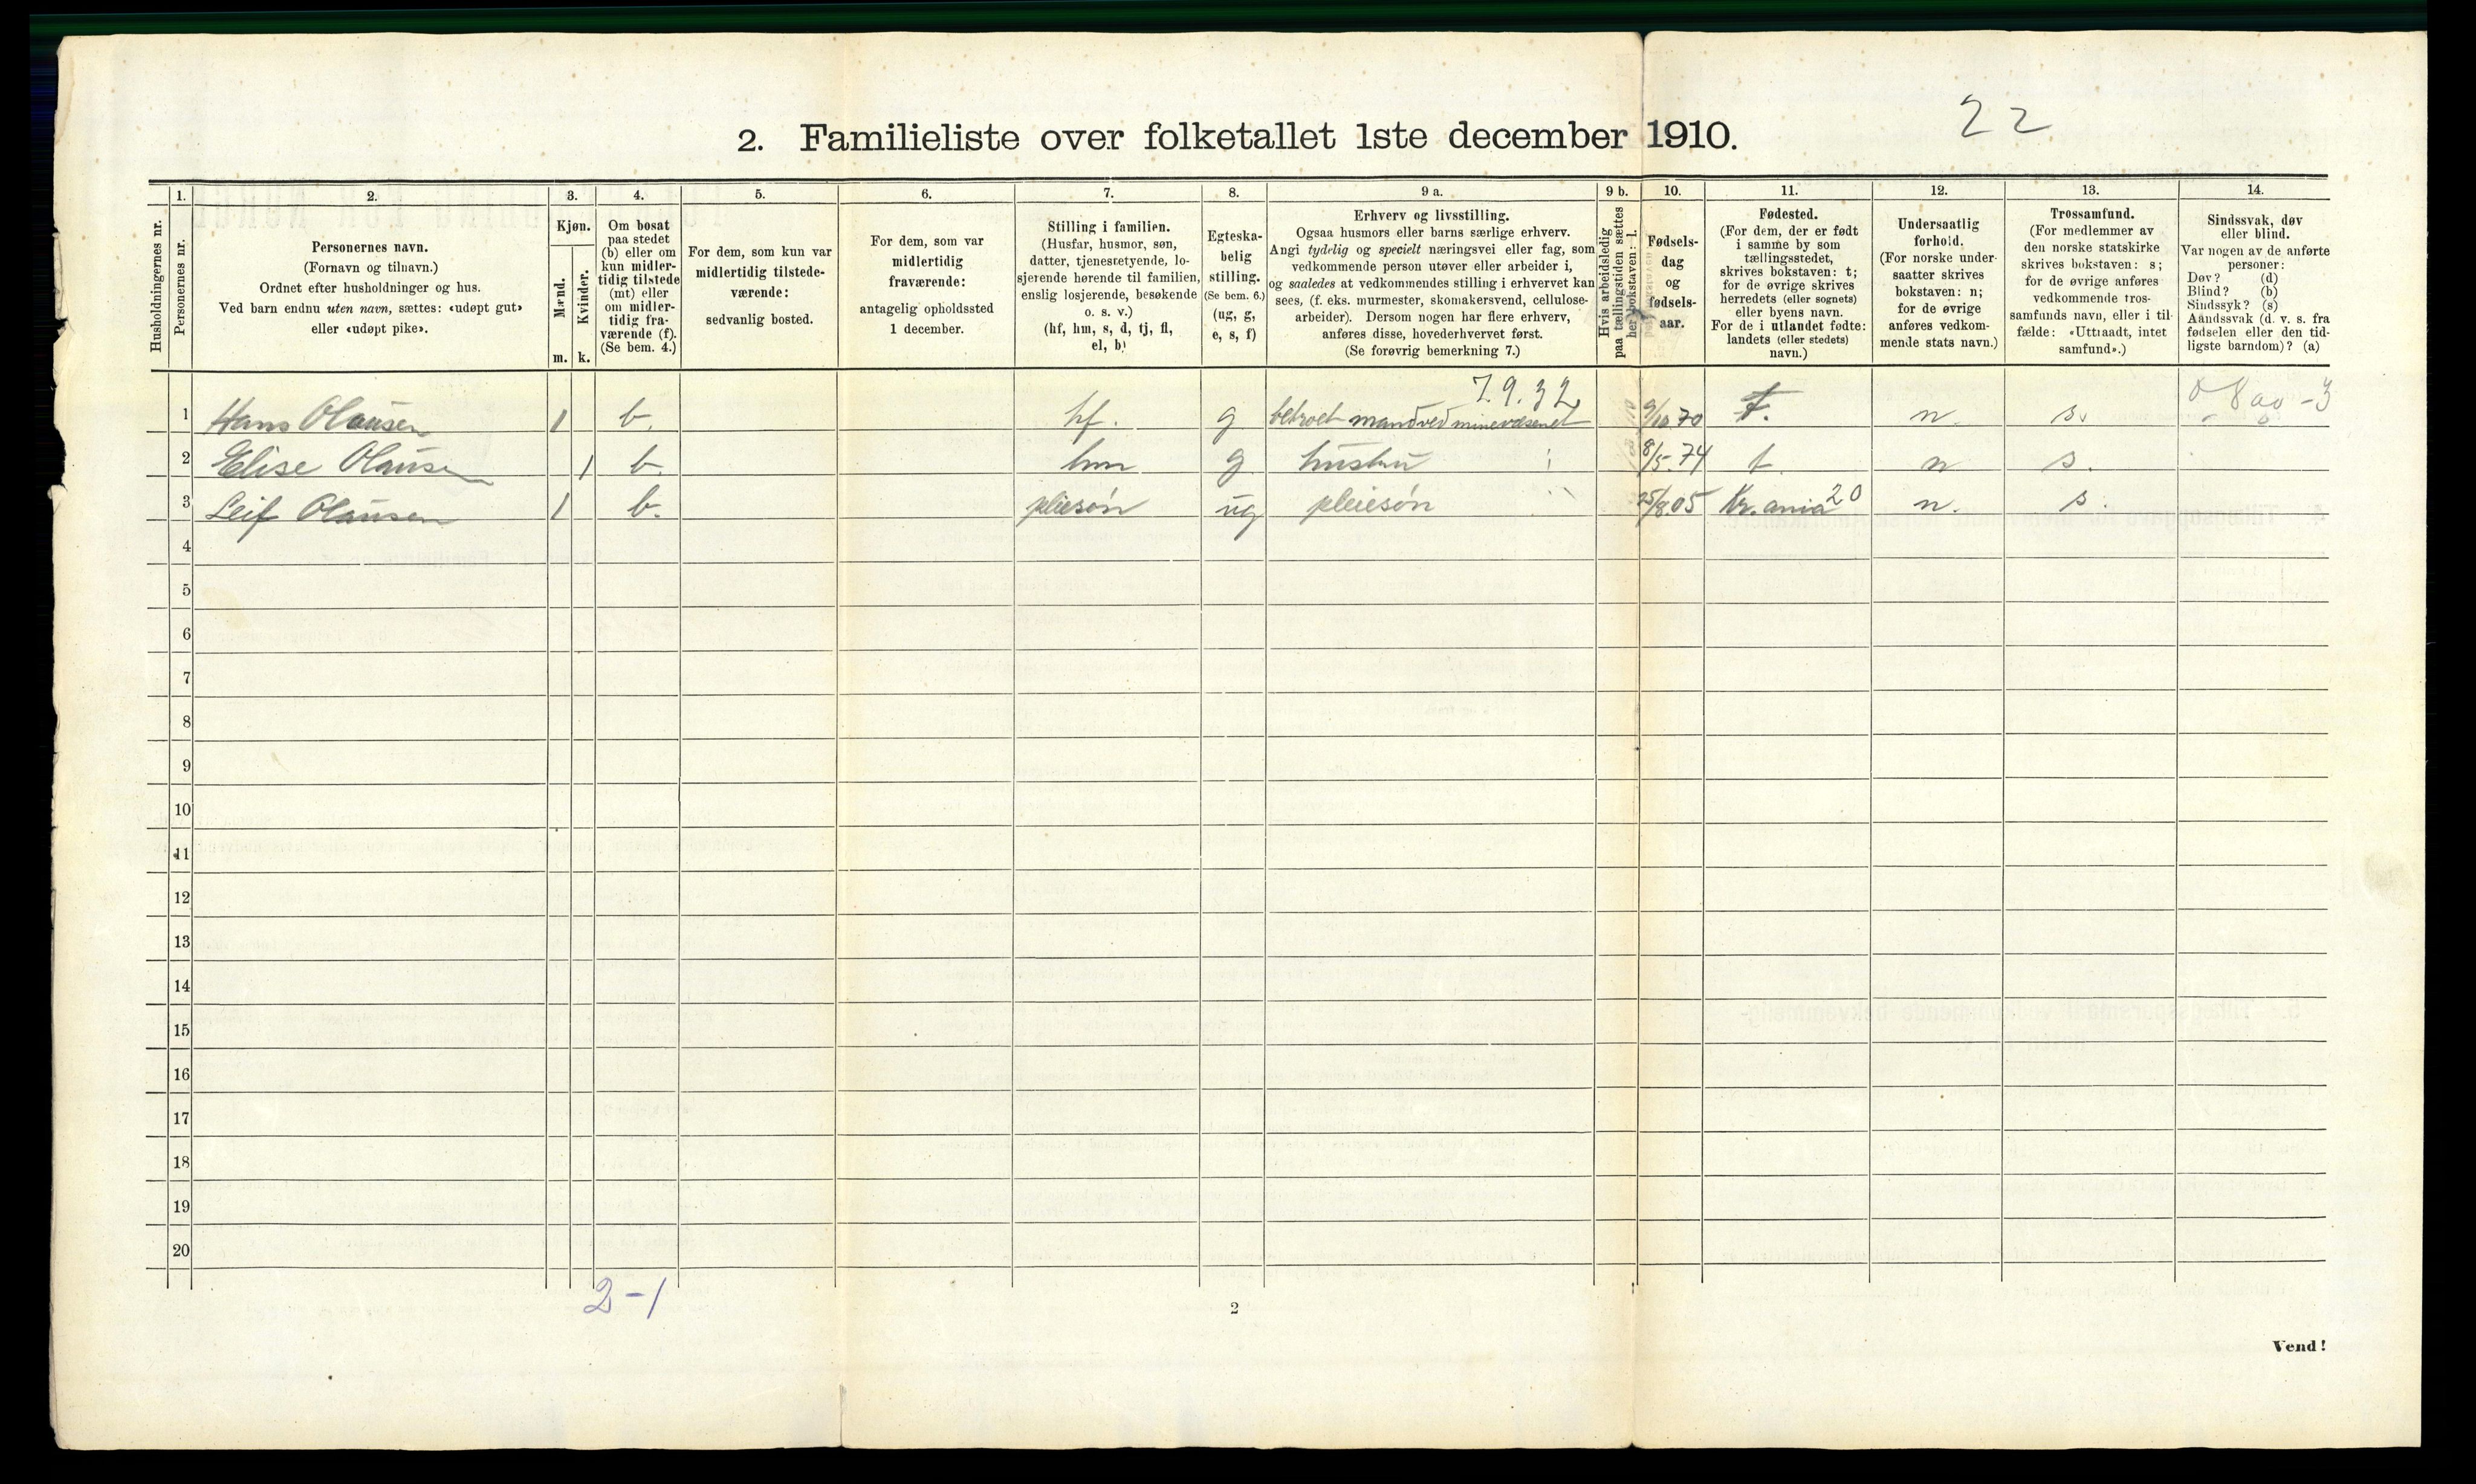 22
2. Familieliste over folketallet 1ste december 1910.
Husholdningernes nr.
1. Personernes nr.
2. Personernes navn.
(Fornavn og tilnavn.)
Ordnet efter husholdninger og hus.
Ved barn endnu uten navn, sættes: «udøpt gut»
eller «udøpt pike».
3. Kjøn.
Mænd. m.
Kvinder. k.
4. Om bosat
paa stedet
(b) eller om
kun midler-
tidig tilstede
(mt) eller
om midler-
tidig fra-
værende (f).
(Se bem. 4.)
5. For dem, som kun var
midlertidig tilstede-
værende:
sedvanlig bosted.
6. For dem, som var
midlertidig
fraværende:
antagelig opholdssted
1 december.
7. Stilling i familien.
(Husfar, husmor, søn,
datter, tjenestetyende, lo-
sjerende hørende til familien,
enslig losjerende, besøkende
o. s. v.)
(hf, hm, s, d, tj, fl,
el, b)
8. Egteska-
belig
stilling.
(Se bem. 6.)
(ug, g,
e, s, f)
9 a. Erhverv og livsstilling.
Ogsaa husmors eller barns særlige erhverv.
Angi tydelig og specielt næringsvei eller fag, som
vedkommende person utøver eller arbeider i,
og saaledes at vedkommendes stilling i erhvervet kan
sees, (f. eks. murmester, skomakersvend, cellulose-
arbeider). Dersom nogen har flere erhverv,
anføres disse, hovederhvervet først.
(Se forøvrig bemerkning 7.)
9 b. Hvis arbeidsledig
paa tællingstiden sættes
her bokstaven: l.
10. Fødsels-
dag
og
fødsels-
aar.
11. Fødested.
(For dem, der er født
i samme by som
tællingsstedet,
skrives bokstaven: t;
for de øvrige skrives
herredets (eller sognets)
eller byens navn.
For de i utlandet fødte:
landets (eller stedets)
navn.)
12. Undersaatlig
forhold.
(For norske under-
saatter skrives
bokstaven: n;
for de øvrige
anføres vedkom-
mende stats navn.)
13. Trossamfund.
(For medlemmer av
den norske statskirke
skrives bokstaven: s;
for de øvrige anføres
vedkommende tros-
samfunds navn, eller i til-
fælde: «Uttraadt, intet
samfund».)
14. Sindssvak, døv
eller blind.
Var nogen av de anførte
personer:
Døv? (d)
Blind? (b)
Sindssyk? (s)
Aandssvak (d. v. s. fra
fødselen eller den tid-
ligste barndom)? (a)
7.9.32
1 Hans Olausen 1 b. hf. g betroet mand ved minevæsenet 9/10 70 t. n. s.
2 Elise Olausen 1 b. hm g hustru 8/5. 74 t. n s.
3 Leif Olausen 1 b. pleiesøn ug pleiesøn 25/8.05 Kr.ania 20 n. s.
4
5
6
7
8
9
10
11
12
13
14
15
16
17
18
19
20
2-1
2
Vend!